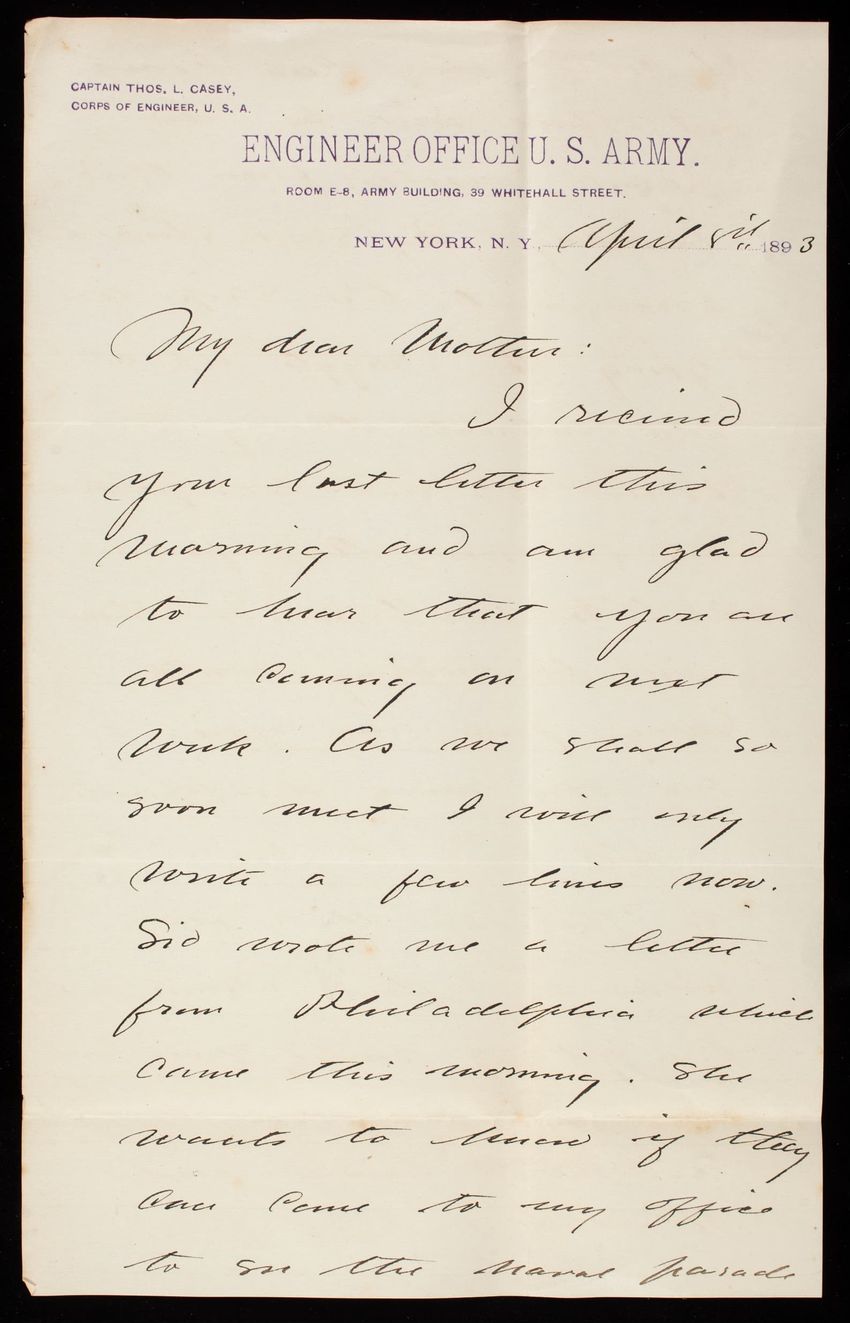 CAPTAIN THOS. L. CASEY,
CORPS OF ENGINEER, U. S. A.
ENGINEER OFFICE U. S. ARMY.
ROOM E-8, ARMY BUILDING, 39 WHITEHALL STREET.
NEW YORK, N. Y. April 1893
My dear Mother:
I received
your last letter this
morning and am glad
to hear that you are
all coming on next
week. As we shall so
soon meet I will only
write a few lines now.
Sid wrote me a letter
from Philadelphia which
came this morning. She
wants to know if they
can come to my office
to see the naval parade